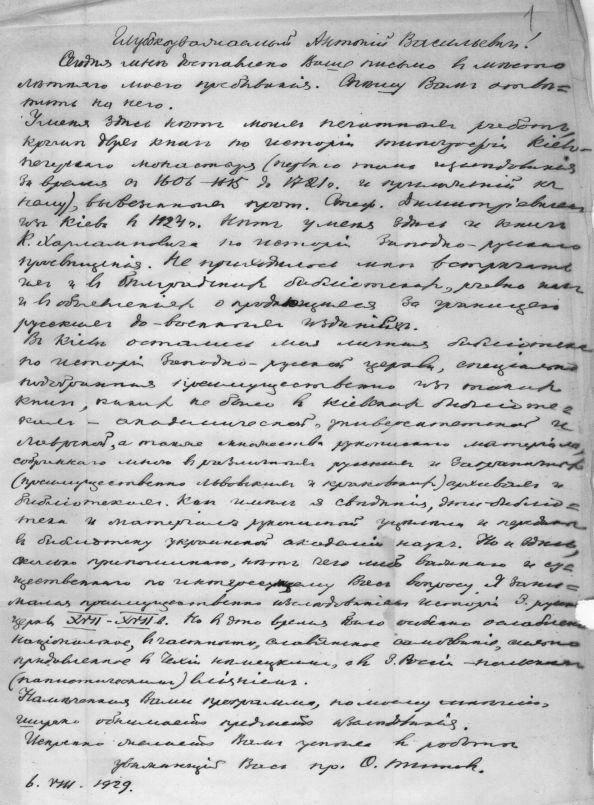 1
Глубокоуважаемый Антоній Васильевич!
Сегодня мнѣ доставлено Ваше письмо въ мѣсто
лѣтняго моего пребыванія. Спѣшу Вамъ отвѣ-
тить на него.
У меня здѣсь нѣтъ моихъ печатныхъ работъ,
кромѣ двухъ книгъ по исторіи типографіи Кіево-
печерскаго монастыря (перваго тома изслѣдованія
за время отъ 1606-1615 до 1721 г. и приложеній къ
нему), вывезенныхъ прот. Стеф. Димитріевичемъ
изъ Кіева въ 1924 г. Нѣтъ у меня здѣсь и книги
К. Харламповича по исторіи западно-русскаго
просвѣщенія. Не приходилось мнѣ встрѣчать
ея и въ бѣлградскихъ библіотекахъ, равно какъ
и въ объявленіяхъ о продающихся за границею
русскихъ до-военныхъ изданіяхъ.
Въ Кіевѣ осталась моя личная библіотека
по исторіи западно-русской церкви, спеціально
подобранная преимущественно изъ такихъ
книгъ, какихъ не было въ кіевскихъ библіоте-
кахъ – академической, университетской и
лаврской, а также множество рукописнаго матеріала,
собраннаго мною въ различныхъ русскихъ и заграничныхъ
(преимущественно львовскихъ и краковскихъ) архивахъ и
библіотекахъ. Какъ имѣю я свѣдѣнія, эти библіо-
тека и матеріалъ рукописный уцѣлѣли и переданы
въ библіотеку украинской академіи наукъ. Но и здѣсь,
сколько припоминаю, нѣтъ чего либо важнаго и су-
щественнаго по интересующему Васъ вопросу. Я зани-
мался преимущественно изслѣдованіемъ исторіи З. русской
церкви XVII-XVIII в. Но въ это время было особенно ослаблено
національное, въ частности, славянское самосознаніе,
придавленное въ Чехіи нѣмецкимъ, а въ З. Россіи – польскимъ
(папистическимъ) вліяніемъ.
Намѣченная Вами программа, по моему мнѣнію,
широко обнимаетъ предметъ изслѣдованія.
Искренно желаетъ Вамъ успѣха въ работѣ
уважающій Васъ пр. Ѳ. Титовъ.
6. VIII. 1929.